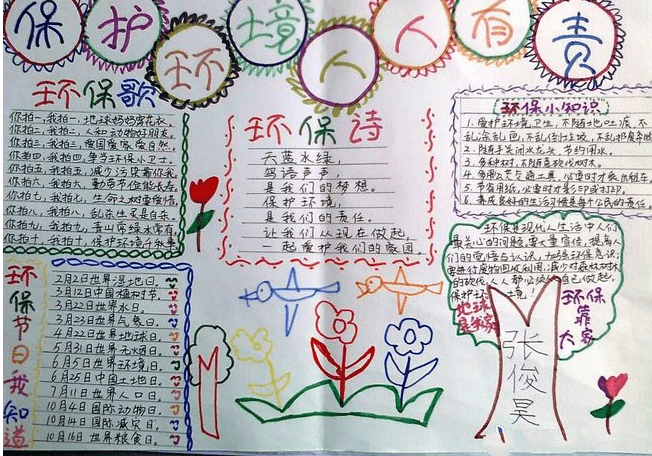 保护环境人人有责
环保歌
你拍一,我拍一,地球妈妈穿花衣。
你拍二,我拍二,人和动物好朋友。
你拍三,我拍三,爱国爱家爱自然。
你拍四,我拍四,争当环保小卫士。
你拍五,我拍五,减少污染靠你我。
你拍六,我拍六,勤
你拍七,我拍七,生命之树要爱惜。
你拍八,我拍八,乱杀
你拍九,我拍九,青山常绿水常有。
你拍十,我拍十,保护环境
环保诗
天蓝水绿,
鸟语声声,
是我们的梦想。
保护环境,
是我们的责任。
让我们从现在做起,
一起爱护我们的家园。
环保小知识
1.爱护环境卫生,不随地吐痰,不
乱涂乱画,不乱倒垃圾,不乱扔废弃物
2.随手关闭水龙头,节约用水。
3.多种树,不随意砍伐树木。
4.多用公共交通工具,必要时才乘出租车。
5.节省用纸,必要时才影印或打印。
6.养成良好的生活习惯是每个公民的责任。
环保是现代人生活中人们
最关心的问题,要大量宣传,提高人
们的觉悟与认识,加强环保意识;
的砍伐,人人都必须从自己做起,
保护环境
地球
是我家
环保
靠
大家
张俊昊
环保节日我知道
2月2日世界湿地日。
3月12日中国植树节。
3月22日世界水日。
3月23日世界气象日。
4月22日世界地球日。
5月31日世界无烟日。
6月5日世界环境日。
6月25日中国土地日。
7月11日世界人口日。
10月4日国际动物日。
10月14日国际减灾日。
10月16日世界粮食日。